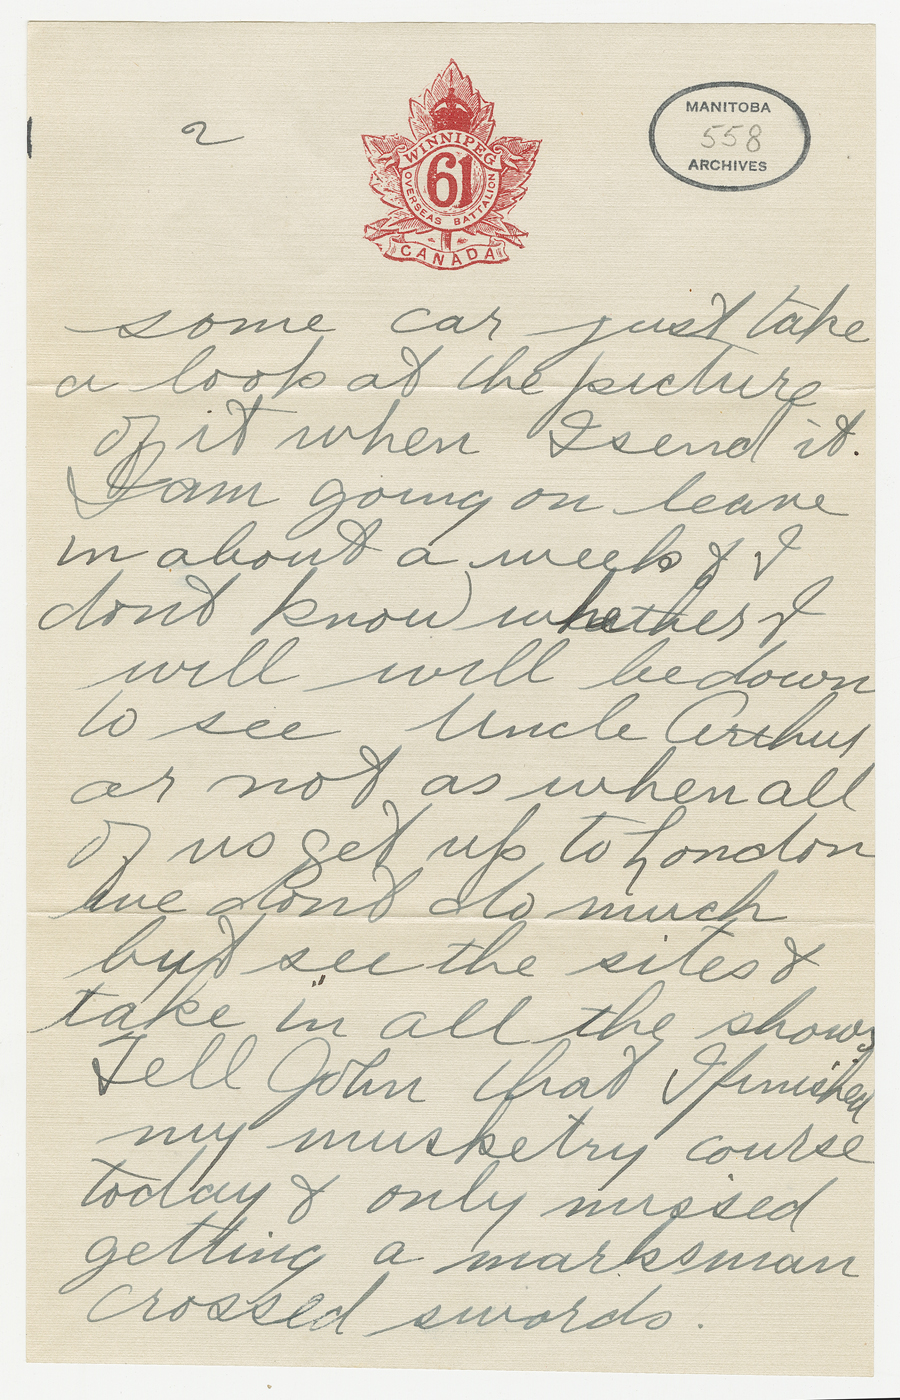 2
WINNIPEG
61
OVERSEAS BATTALION
CANADA
MANITOBA
558
ARCHIVES
some car just take
a look at the picture
of it when I send it.
I am going on leave
in about a week & I
dont know whether I
will will be down
to see Uncle Arthur
or not as when all
of us get up to London
we dont do much
but see the sites &
take in all the shows
Tell John that I finished
my musketry course
today & only missed
getting a marksman
crossed swords.